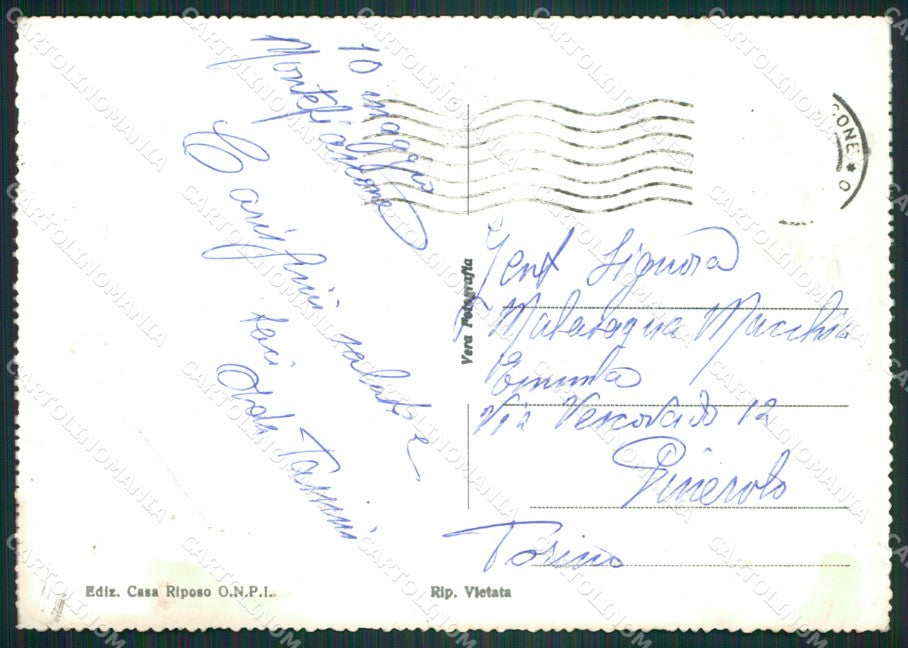 10 maggio
Montefiascone
Carissimi saluti e
baci Alda Tassini
CONE * O
Vera Fotografia
Gent Signora
Malaragua Macchia
Emma
Via Vescovado 12
Pinerolo
Torino
Ediz. Casa Riposo O.N.P.I.
Rip. Vietata
CARTOLINOMANIA